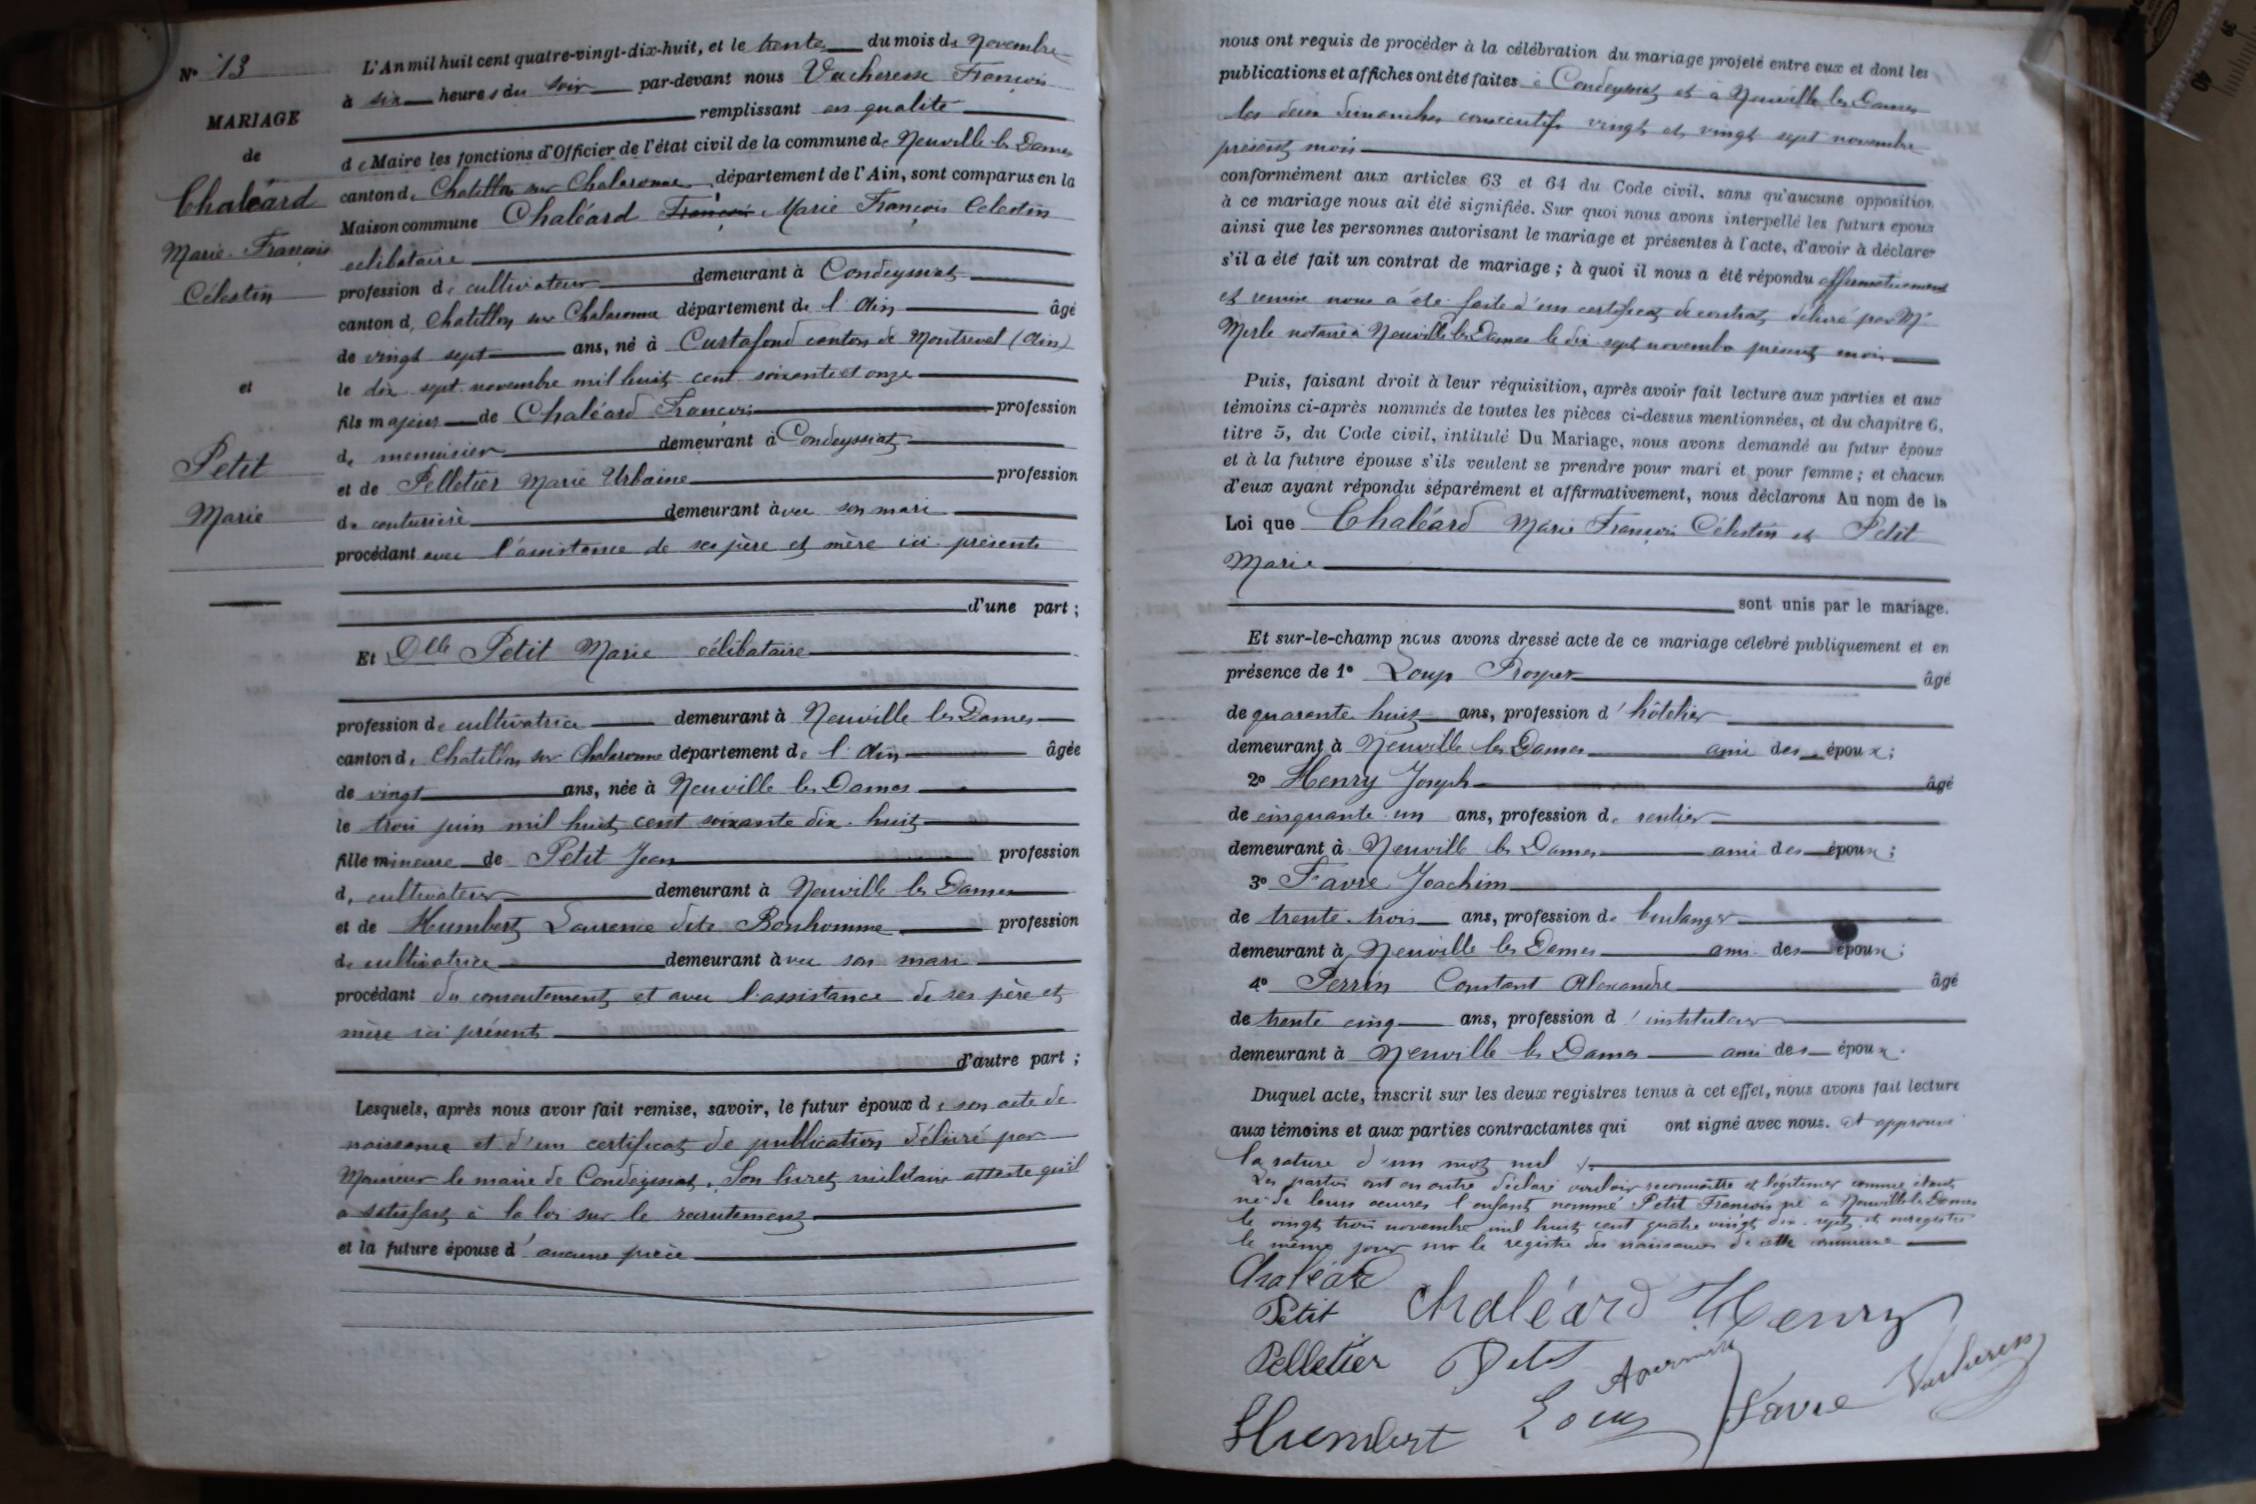 N° 13
MARIAGE
de
Chaléard
Marie-François
Célestin
et
Petit
Marie
L'An mil huit cent quatre-vingt-dix-huit, et le trente du mois de Novembre
à six heures du soir par-devant nous Vacheresse François
remplissant en qualité
de Maire les fonctions d'Officier de l'état civil de la commune de Neuville les Dames
canton de Chatillon sur Chalaronne, département de l'Ain, sont comparus en la
Maison commune Chaléard François Marie François Celestin
célibataire
profession de cultivateur demeurant à Condeyssiat
canton de Chatillon sur Chalaronne département de l'Ain âgé
de vingt sept ans, né à Curtafond canton de Montrevel (Ain)
le dix sept novembre mil huit cent soixante et onze
fils majeur de Chaléard François profession
de menuisier demeurant à Condeyssiat
et de Pelletier Marie Urbaine profession
de couturière demeurant avec son mari
procédant avec l'assistance de ses père et mère ici présents
d'une part ;
Et Dlle Petit Marie célibataire
profession de cultivatrice demeurant à Neuville les Dames
canton de Chatillon sur Chalaronne département de l'Ain âgée
de vingt ans, née à Neuville les Dames
le trois juin mil huit cent soixante dix-huit
fille mineure de Petit Jean profession
de cultivateur demeurant à Neuville les Dames
et de Humbert Laurence dite Bonhomme profession
de cultivatrice demeurant avec son mari
procédant du consentement et avec l'assistance de ses père et
mère ici présents
d'autre part ;
Lesquels, après nous avoir fait remise, savoir, le futur époux de son acte de
naissance et d'un certificat de publication délivré par
Monsieur le maire de Condeyssiat. Son livret militaire atteste qu'il
a satisfait à la loi sur le recrutement
et la future épouse d'aucune pièce
nous ont requis de procéder à la célébration du mariage projeté entre eux et dont les
publications et affiches ont été faites à Condeyssiat et à Neuville les Dames
les deux dimanches consécutifs vingt et vingt sept novembre
présent mois
conformément aux articles 63 et 64 du Code civil, sans qu'aucune opposition
à ce mariage nous ait été signifiée. Sur quoi nous avons interpellé les futurs époux
ainsi que les personnes autorisant le mariage et présentes à l'acte, d'avoir à déclarer
s'il a été fait un contrat de mariage ; à quoi il nous a été répondu affirmativement
et remise nous a été faite d'un certificat de contrat délivré par Me
Merle notaire à Neuville les Dames le dix-sept novembre présent mois
Puis, faisant droit à leur réquisition, après avoir fait lecture aux parties et aux
témoins ci-après nommés de toutes les pièces ci-dessus mentionnées, et du chapitre 6,
titre 5, du Code civil, intitulé Du Mariage, nous avons demandé au futur époux
et à la future épouse s'ils veulent se prendre pour mari et pour femme ; et chacun
d'eux ayant répondu séparément et affirmativement, nous déclarons Au nom de la
Loi que Chaléard Marie François Célestin et Petit
Marie
sont unis par le mariage.
Et sur-le-champ nous avons dressé acte de ce mariage célébré publiquement et en
présence de 1° Loup Prosper âgé
de quarante huit ans, profession d'hôtelier
demeurant à Neuville les Dames ami des époux ;
2° Henry Joseph âgé
de cinquante un ans, profession de rentier
demeurant à Neuville les Dames ami des époux ;
3° Favre Joachim
de trente-trois ans, profession de boulanger
demeurant à Neuville les Dames ami des époux ;
4° Perrin Constant Alexandre âgé
de trente cinq ans, profession d'instituteur
demeurant à Neuville les Dames ami des époux.
Duquel acte, inscrit sur les deux registres tenus à cet effet, nous avons fait lecture
aux témoins et aux parties contractantes qui ont signé avec nous. Et approuvé
la rature d'un mot nul
Les parties ont en outre déclaré vouloir reconnaître et légitimer comme étant
né de leurs œuvres l'enfant nommé Petit François né à Neuville les Dames
le vingt trois novembre mil huit cent quatre vingt dix-sept et enregistré
le même jour sur le registre des naissances de cette commune
Chaléard
Petit Chaléard Henry
Pelletier Petit
Humbert Loup Favre Vacheresse